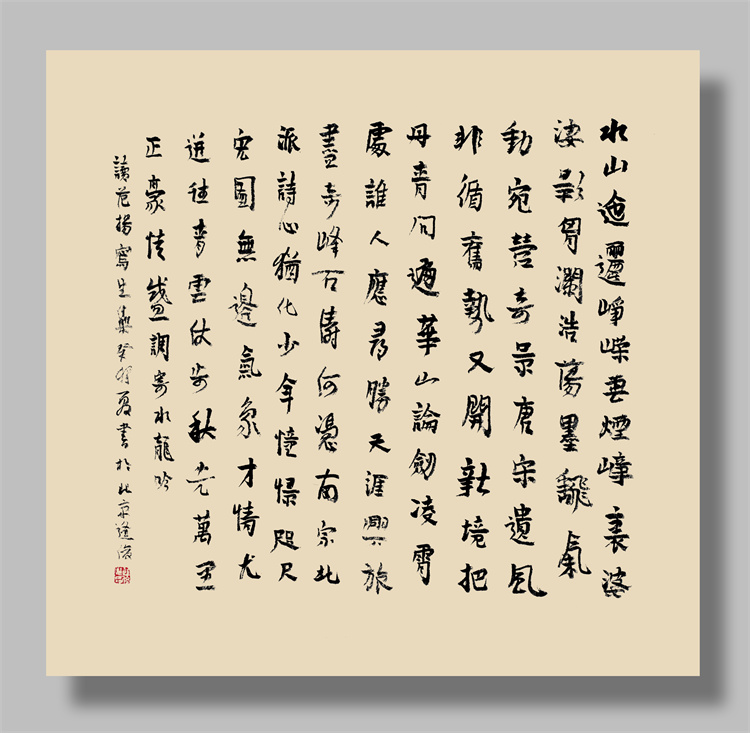 水山迤邐崢嶸煙嶂裏婆
娑影胸瀾浩蕩墨翻氣
動宛營奇景唐宋遺風
非循舊勢又開新境把
丹青問遍華山論劍凌霄
處誰人應尋勝天涯興旅
盡奇峰石濤何憑南宗北
派詩心猶化少年憧憬咫尺
宏圖無邊氣象才情尤
迸往青雲仗秋光萬里
正豪情盛調寄水龍吟
讀范揚寫生集癸卯夏書於北京逢俊